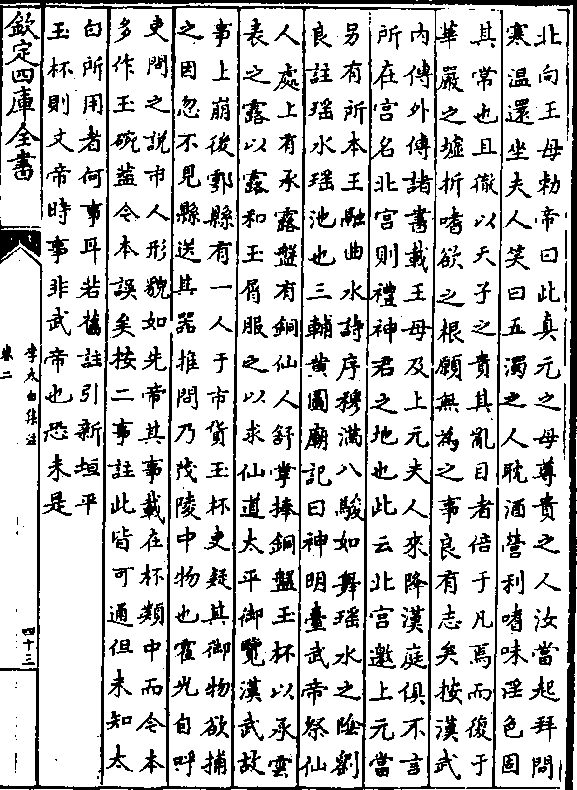 北向王母勅帝曰此真元之母尊貴之人汝當起拜問
寒温還坐夫人笑曰五濁之人耽酒營利嗜味淫色固
其常也且徹以天子之貴其亂目者倍于凡焉而復于
華嚴之墟折嗜欲之根願無為之事良有志矣按漢武
内傳外傳諸書載王母及上元夫人來降漢庭俱不言
所在宫名北宫則禮神君之地也此云北宫邀上元當
另有所本王融曲水詩序穆滿八駿如舞瑶水之陰劉
良註瑶水瑶池也三輔黄圖廟記曰神明臺武帝祭仙
人處上有承露盤有銅仙人舒掌捧銅盤玉杯以承雲
表之露以露和玉屑服之以求仙道太平御覽漢武故
事上崩後鄠縣有一人于市貨玉杯吏疑其御物欲捕
之因忽不見縣送其器推問乃茂陵中物也霍光自呼
吏問之説市人形貌如先帝其事載在杯類中而今本
多作玉碗葢今本誤矣按二事註此皆可通但未知太
白所用者何事耳若舊註引新垣平
玉杯則文帝時事非武帝也恐未是
欽定四庫全書
李太白集注
卷二
四十三